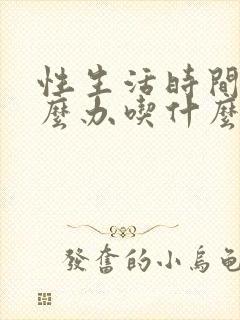 性生活時間
麼办喫什麼
發奮的小烏龜